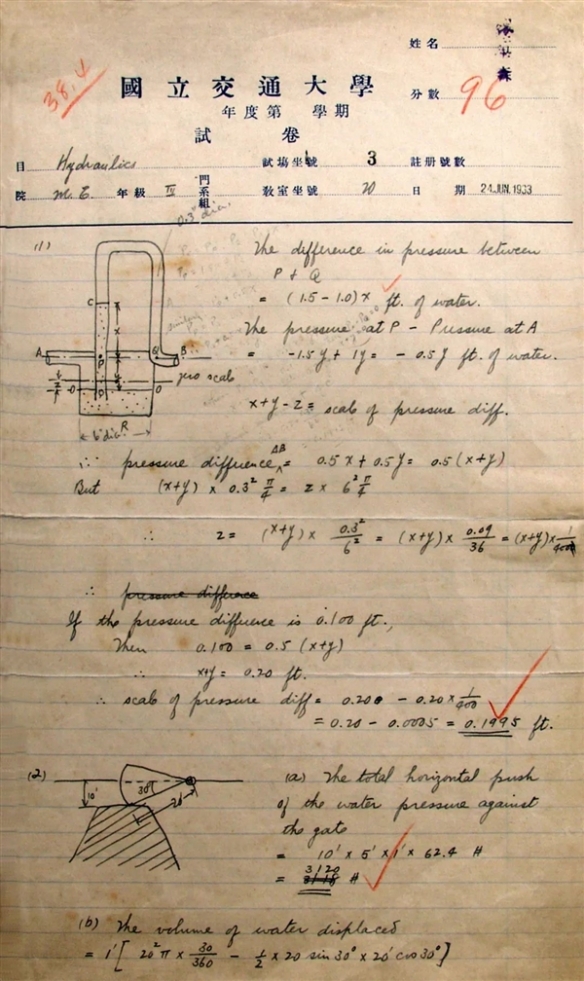 姓名
38,4
國立交通大學
分數 96
年度第 學期
試卷
目 Hydraulics 試場坐號 3 註册號數
院 M. E. 年級 IV 門系組 教室坐號 20 日期 24 JUN. 1933
0.3" dia.
(1) The difference in pressure between
P + Q
= (1.5 - 1.0) x ft. of water.
The pressure at P - Pressure at A
= -1.5 y + 1 y = - 0.5 y ft. of water.
C
x
A P Q B
y
zero scale
O O
z
R
6" dia.
x+y-z = scale of pressure diff.
∴ pressure difference AB = 0.5 x + 0.5 y = 0.5 (x+y)
But (x+y) x 0.3² π/4 = z x 6² π/4
∴ z = (x+y) x 0.3²/6² = (x+y) x 0.09/36 = (x+y) x 1/400
∴ pressure difference
If the pressure difference is 0.100 ft.,
Then 0.100 = 0.5 (x+y)
∴ x+y = 0.20 ft.
∴ scale of pressure diff = 0.200 - 0.20 x 1/400
= 0.20 - 0.0005 = 0.1995 ft.
(2) 10' 30° 20'
(a) The total horizontal push
of the water pressure against
the gate
= 10' x 5' x 1' x 62.4 #
= 3120 #
(b) The volume of water displaced
= 1' [ 20² π x 30/360 - 1/2 x 20 sin 30° x 20' cos 30° ]